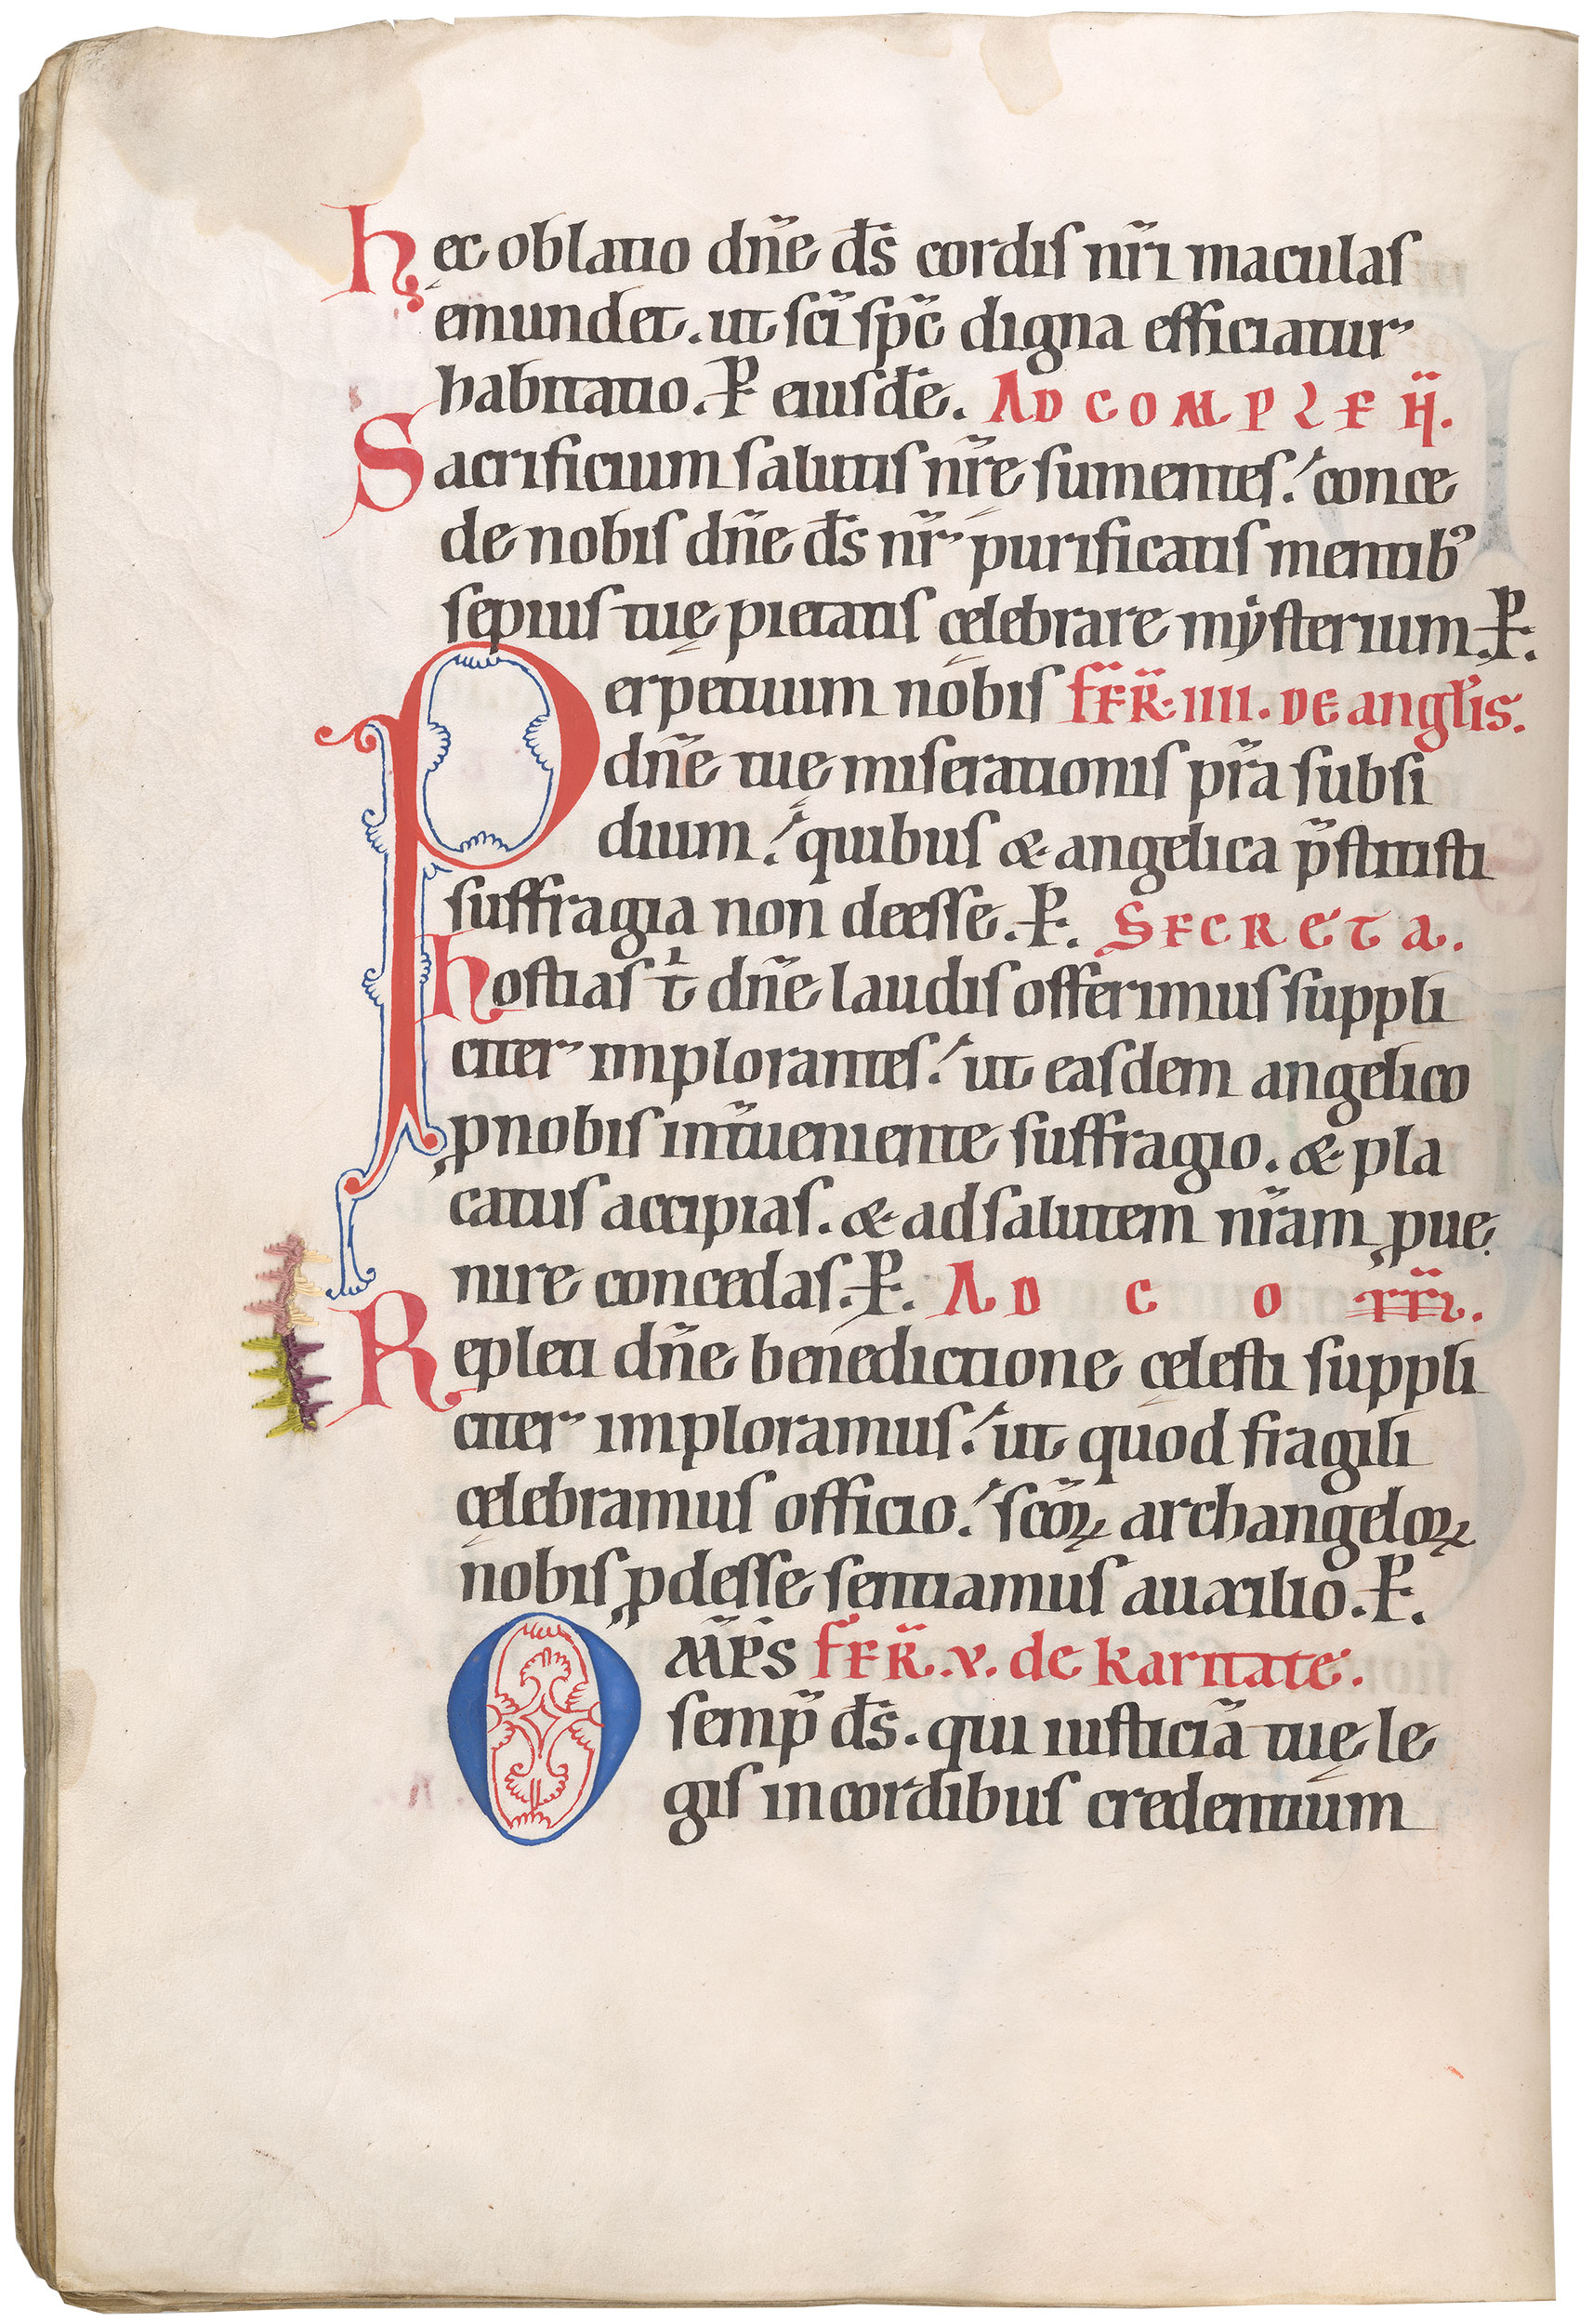 hęc oblatio dñe d̄s cordis nr̃i maculas
emundet. ut sc̃i sp̃c digna efficiatur
habitatio. P̶ eiusdē. AD COMPLEÑ.
Sacrificium salutis nr̃ę sumentes. conce
de nobis dñe d̄s nr̃ purificatis mentibꝰ
sepius tuę pietatis cęlebrare mẏsterium. P̶.
Perpetuum nobis FER̃. IIII. DE angľis.
dñe tuę miserationis pr̃a subsi
dium. quibus & angelica p̃stitisti
suffragia non deesse. P̶. SECRETA.
hostias tͥ dñe laudis offerimus suppli
citer implorantes. ut easdem angelico
ꝓnobis int̃ueniente suffragio. & pla
catus accipias. & adsalutem nr̃am ꝑue
nire concedas. P̶. AD CO
Repleti dñe benedictione cęlesti suppli
citer imploramus. ut quod fragili
cęlebramus officio. sc̃oꝝ archangeloꝝ
nobis ꝓdesse sentiamus auxilio. P̶.
OMP̃S FER̃. v. de karitate.
semp̃ d̄s. qui iusticiā tuę le
gis incordibus credentium